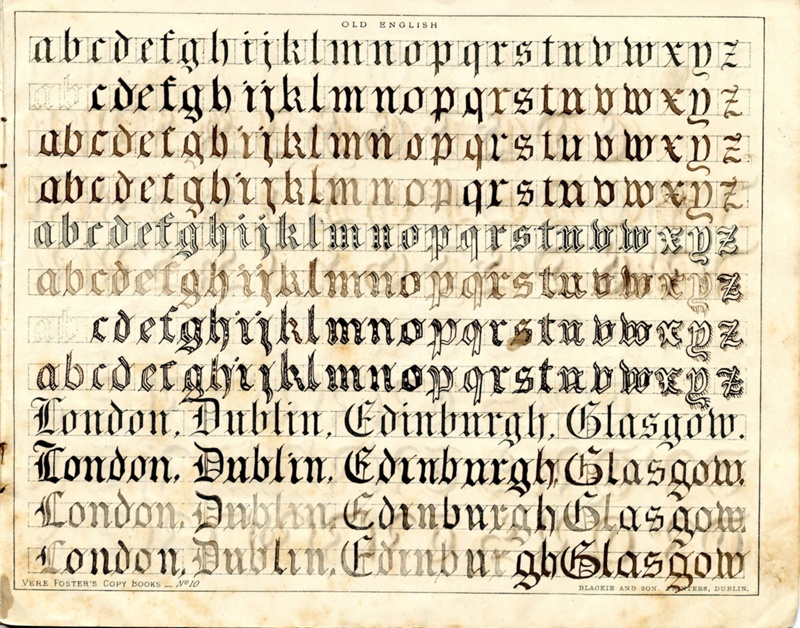 OLD ENGLISH
abcdefghijklmnopqrstuvwxyz
abcdefghijklmnopqrstuvwxyz
abcdefghijklmnopqrstuvwxyz
abcdefghijklmnopqrstuvwxyz
abcdefghijklmnopqrstuvwxyz
abcdefghijklmnopqrstuvwxyz
abcdefghijklmnopqrstuvwxyz
abcdefghijklmnopqrstuvwxyz
London, Dublin, Edinburgh, Glasgow.
London, Dublin, Edinburgh, Glasgow.
London, Dublin, Edinburgh Glasgow
London, Dublin, Edinburgh Glasgow
VERE FOSTER'S COPY BOOKS — No 10
BLACKIE AND SON, PRINTERS, DUBLIN.